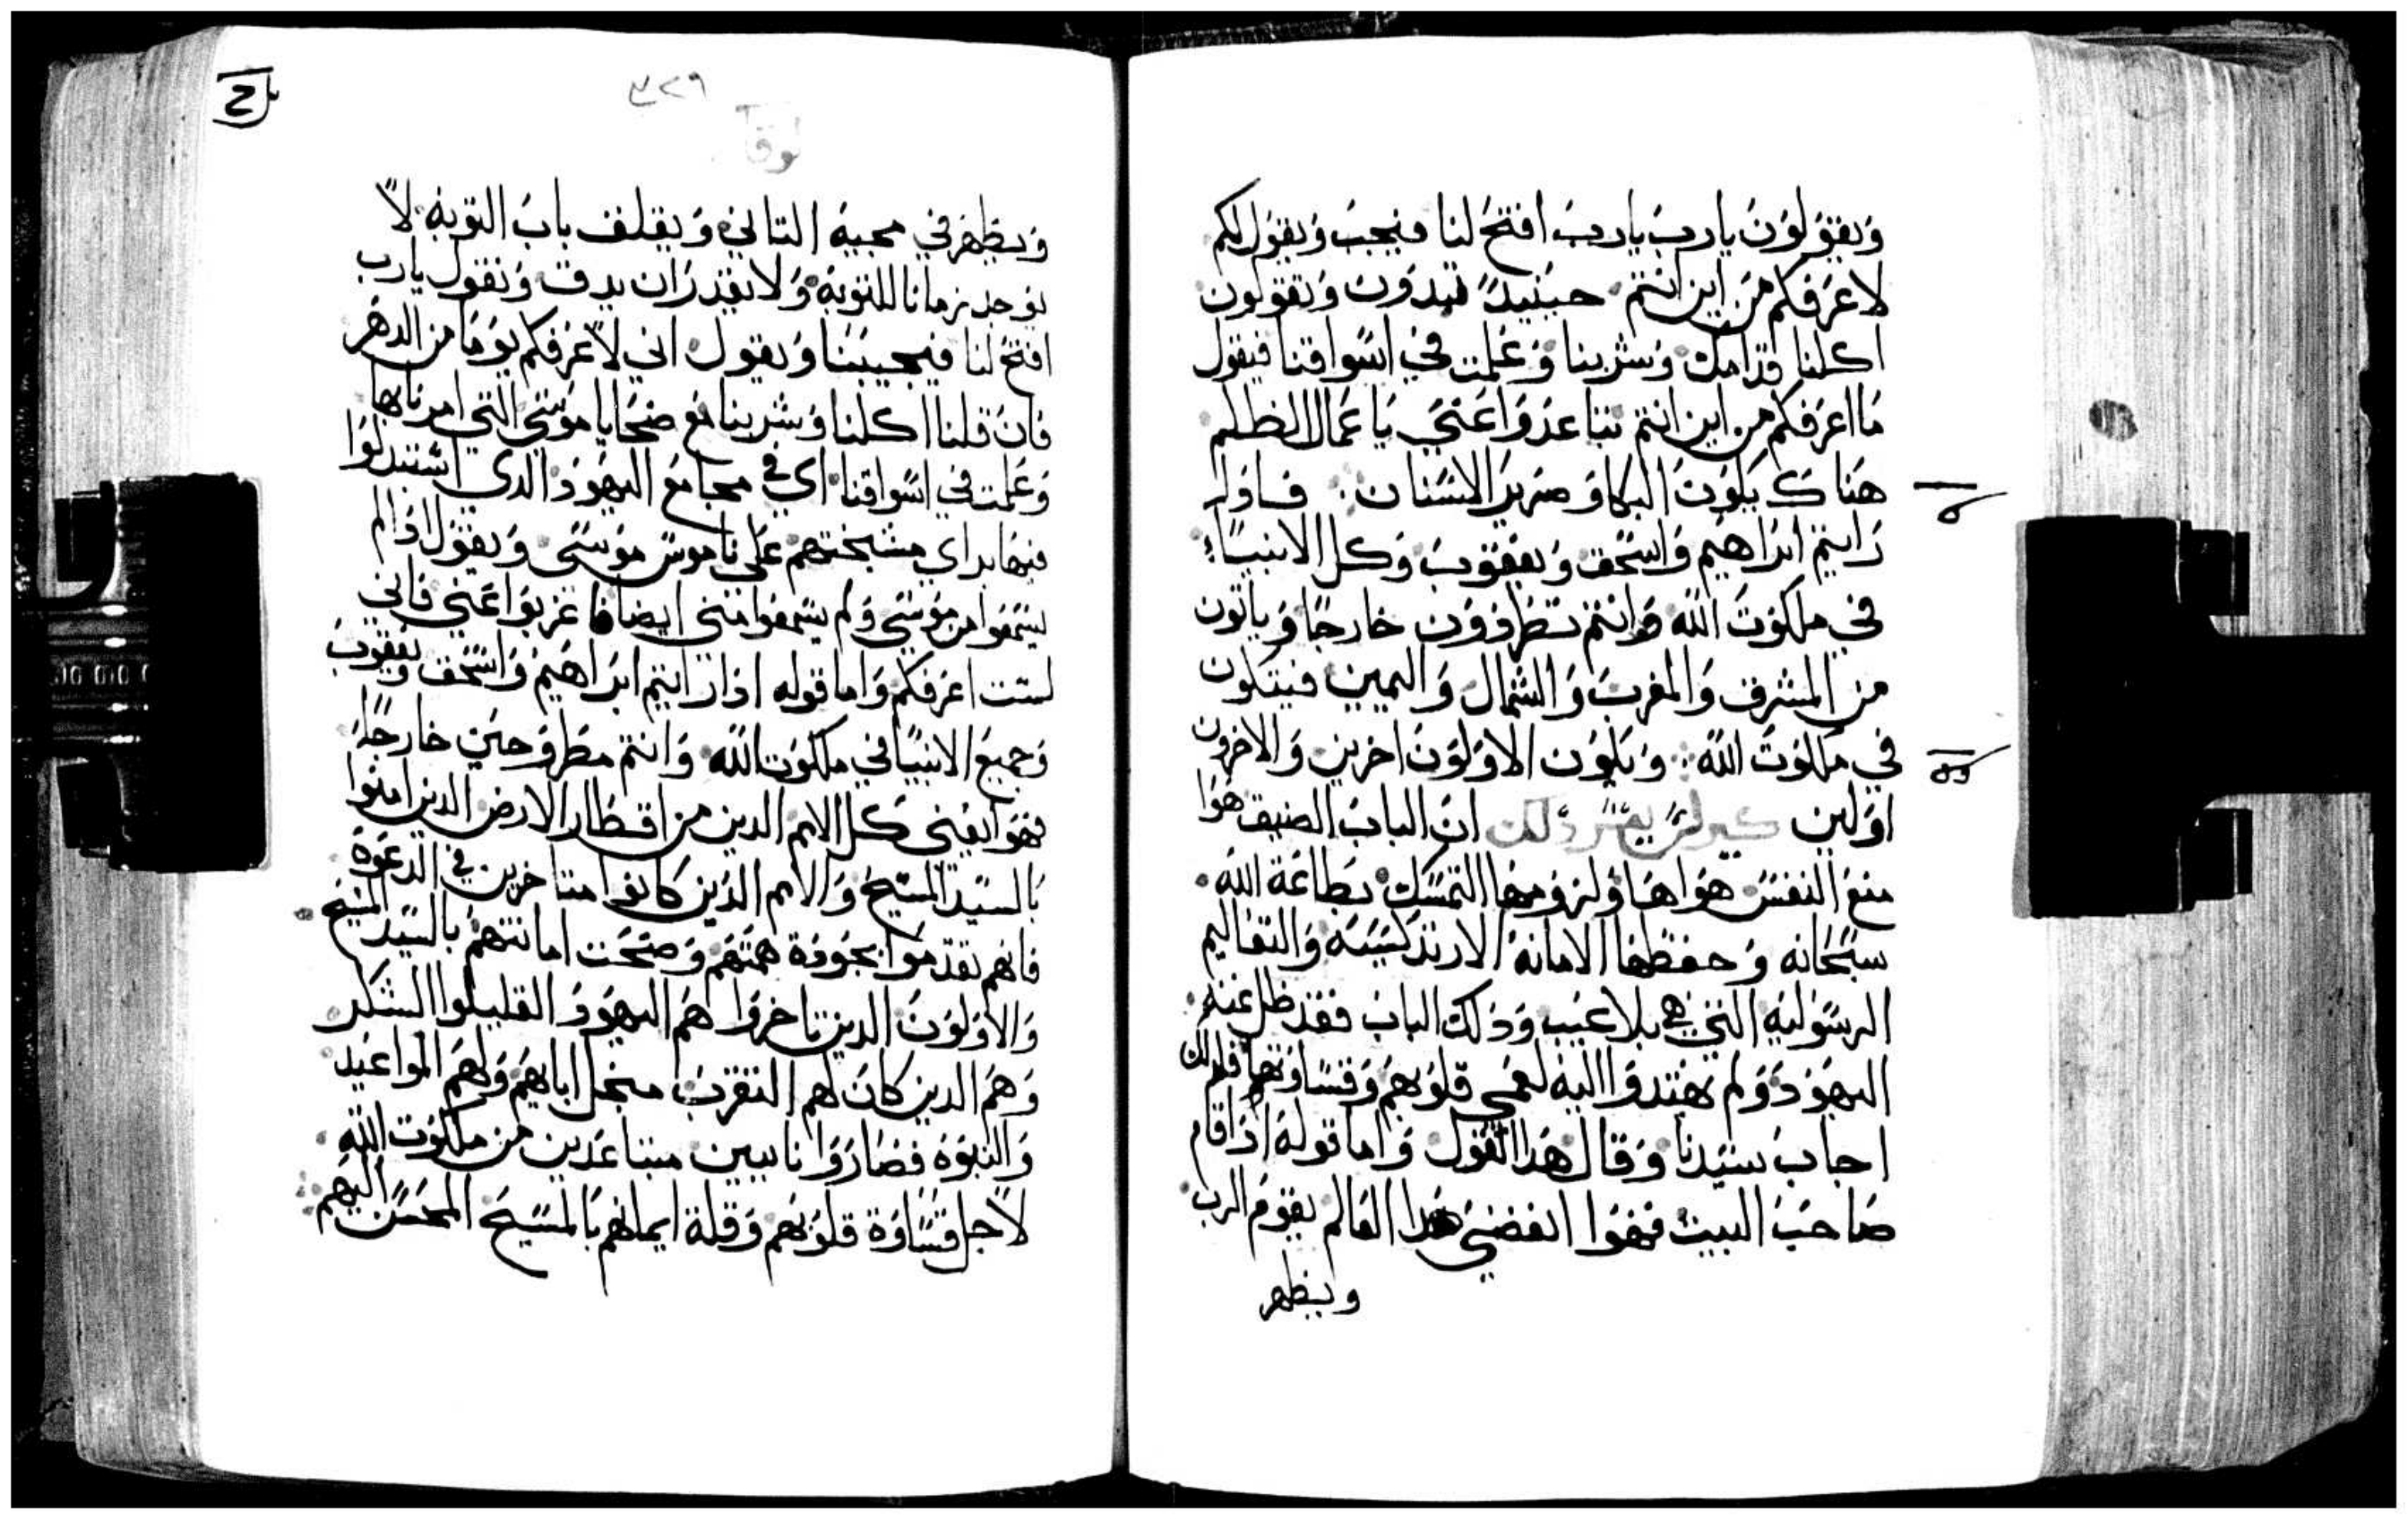 ويقولون يارب يارب افتح لنا فيجيب ويقول لكم
لاعرفكم من اين انتم حينيد تبدون وتقولون
اكلنا قدامك وشربنا وعلمت في اسواقنا فيقول
ما اعرفكم من اين انتم تباعدوا عني يا عمال الظلم
هناك يكون البكا وصرير الاسنان فاول
رايتم ابراهيم واسحق ويعقوب وكل الانبيا
في ملكوت الله وانتم تطردون خارجا وياتون
من المشرق والمغرب والشمال واليمين فيتكون
في ملكوت الله ويكون الاولون اخرين والاخرون
اولين كيرلس يفسر دلك ان الباب الضيق هوا
منع النفس هواها ولزومها التمسك بطاعة الله
سبحانه وحفظها الامانة الارتدكسيه والتعاليم
الرسوليه التي هي بلا عيب وذلك الباب فقد ظل عنه
اليهود ولم يهتدوا اليه لعمي قلوبهم وقساوتها فلدلك
اجاب سيدنا وقال هدا القول واما قوله اذا قام
صاحب البيت فهوا انفضي هدا العالم يقوم الرب
ويظهر
٣٢٩
لوقا
ويظهر في مجيه التاني ويغلف باب التوبه لا
يوجد زمانا للتوبه ولا نقدر ان ندق ونقول يارب
افتح لنا فيجيبنا ويقول اني لاعرفكم يوما من الدهر
فان قلنا اكلنا وشربنا مع ضحايا موسي التي امرنا بها
وعلمت في اسواقنا اي في مجامع اليهود الدي استبدلوا
فيها براي مشيختهم علي ناموس موسي ويقول اذا لم
يسمعوا من موسي ولم يسمعوا مني ايضا فاغربوا عني فاني
لست اعرفكم واما قوله اذا رايتم ابراهيم واسحق ويعقوب
وجميع الانبيا في ملكوت الله وانتم مطروحين خارجا
فهوا يعني كل الامم الدين من اقطار الارض الدين امنوا
بالسيد المسيح والامم الذين كانوا متاخرين في الدعوة
فانهم تقدموا بجودة همتهم وصحت امانتهم بالسيد المسيح
والاولون الدين تاخروا هم اليهود القليلوا الشكر
وهم الدين كان لهم التقرب من اجل ابايهم ولهم المواعيد
والنبوه فصاروا نايبين متباعدين من ملكوت الله
لاجل قساوة قلوبهم وقلة ايمانهم بالمسيح المحسن اليهم